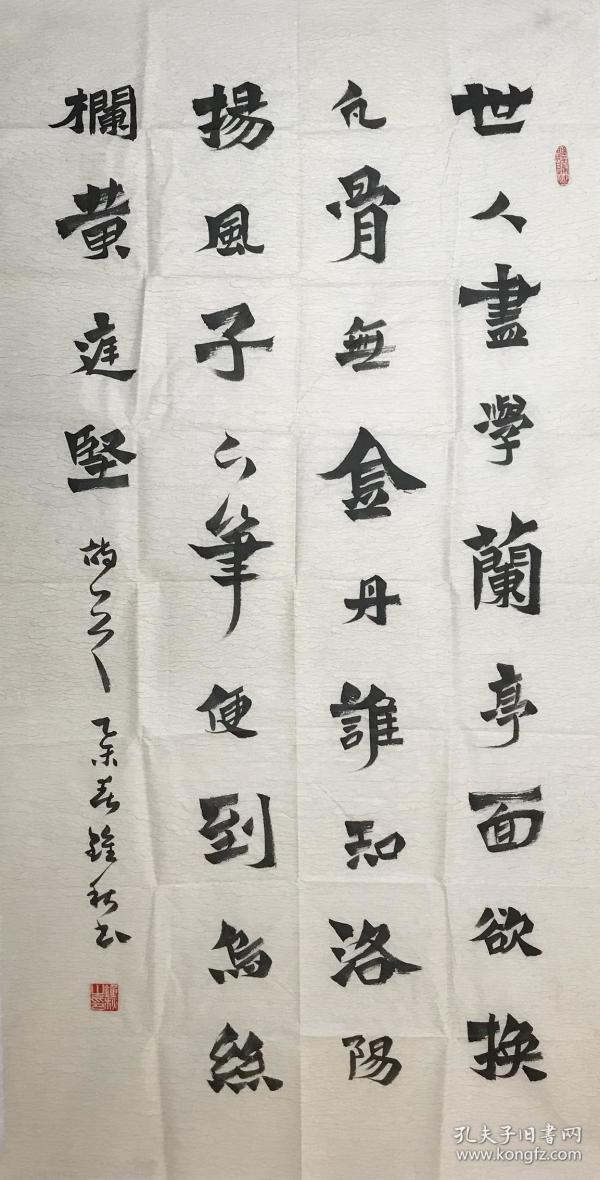 世人盡學蘭亭面欲換
凡骨無金丹誰知洛陽
揚風子下筆便到烏絲
欄黃庭堅詩一首 乙未春
孔夫子旧书网
www.kongfz.com